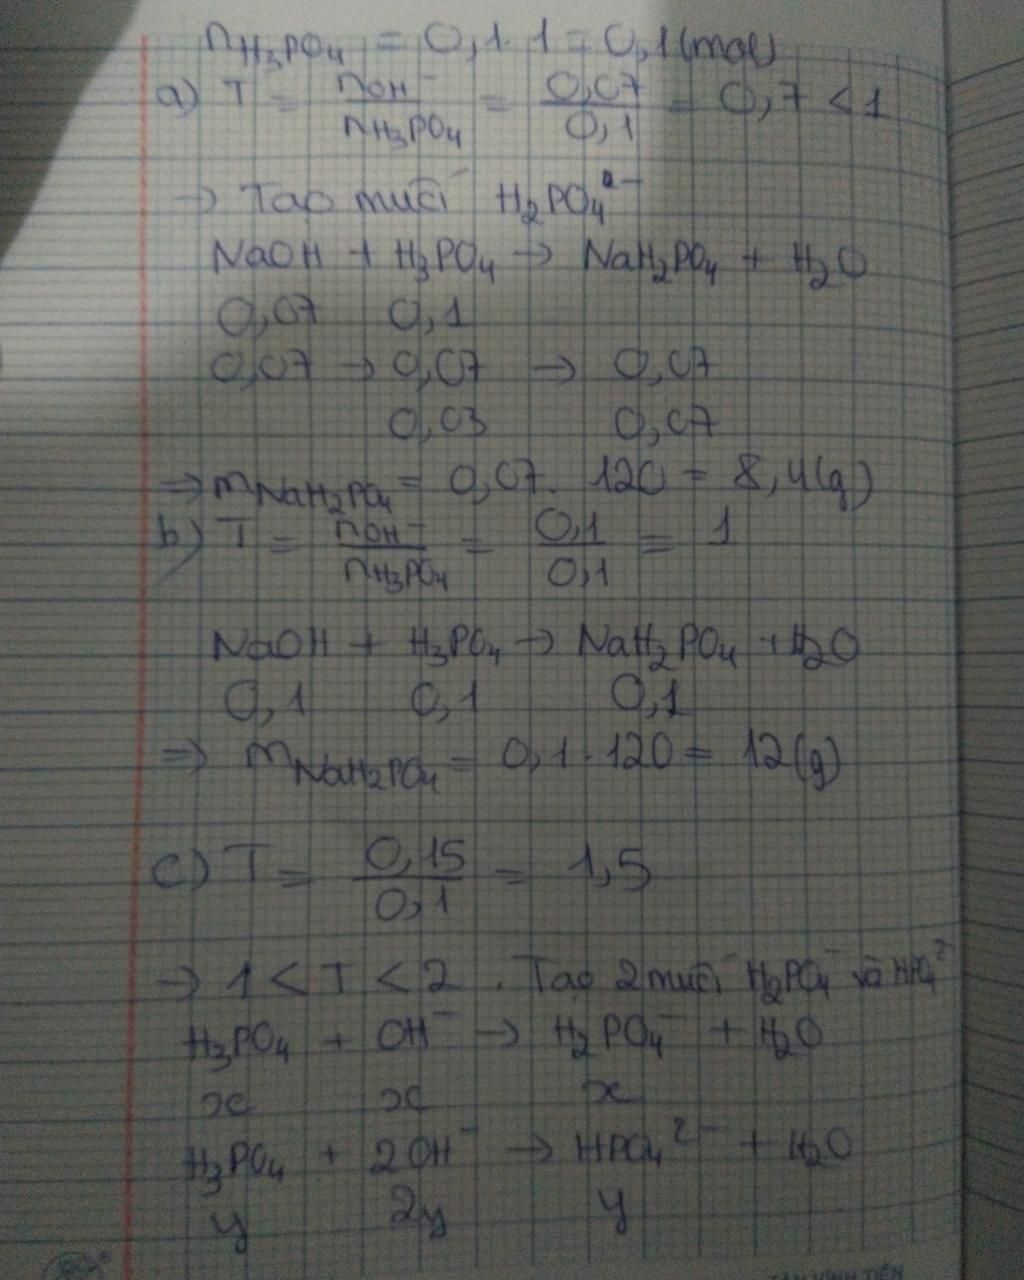 nH₃PO₄ = 0,1.1 = 0,1 (mol)
a) T = nOH⁻/nH₃PO₄ = 0,07/0,1 = 0,7 < 1
→ Tạo muối H₂PO₄²⁻
NaOH + H₃PO₄ → NaH₂PO₄ + H₂O
0,07 0,1
0,07 → 0,07 → 0,07
0,03 0,07
⇒ mNaH₂PO₄ = 0,07. 120 = 8,4(g)
b) T = nOH⁻/nH₃PO₄ = 0,1/0,1 = 1
NaOH + H₃PO₄ → NaH₂PO₄ + H₂O
0,1 0,1 0,1
⇒ mNaH₂PO₄ = 0,1.120 = 12(g)
c) T = 0,15/0,1 = 1,5
→ 1 < T < 2. Tạo 2 muối H₂PO₄⁻ và HPO₄²⁻
H₃PO₄ + OH⁻ → H₂PO₄⁻ + H₂O
x x x
H₃PO₄ + 2OH⁻ → HPO₄²⁻ + H₂O
y 2y y